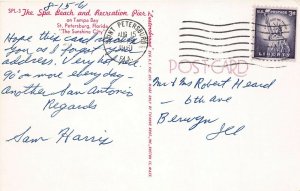 8-15-61
SPL-3 The Spa Beach and Recreation Pier
on Tampa Bay
St. Petersburg, Florida
"The Sunshine City"
ST. PETERSBURG
AUG 15
POST CARD
U.S. POSTAGE 3¢
LIBERTY
Hope this card reaches
You, as I forgot
address. Very hot here
90 or more every day
Another San Antonio
Regards
Sam Harris
Mr & Mrs Robert Heard
6th Ave
Berwyn
Ill